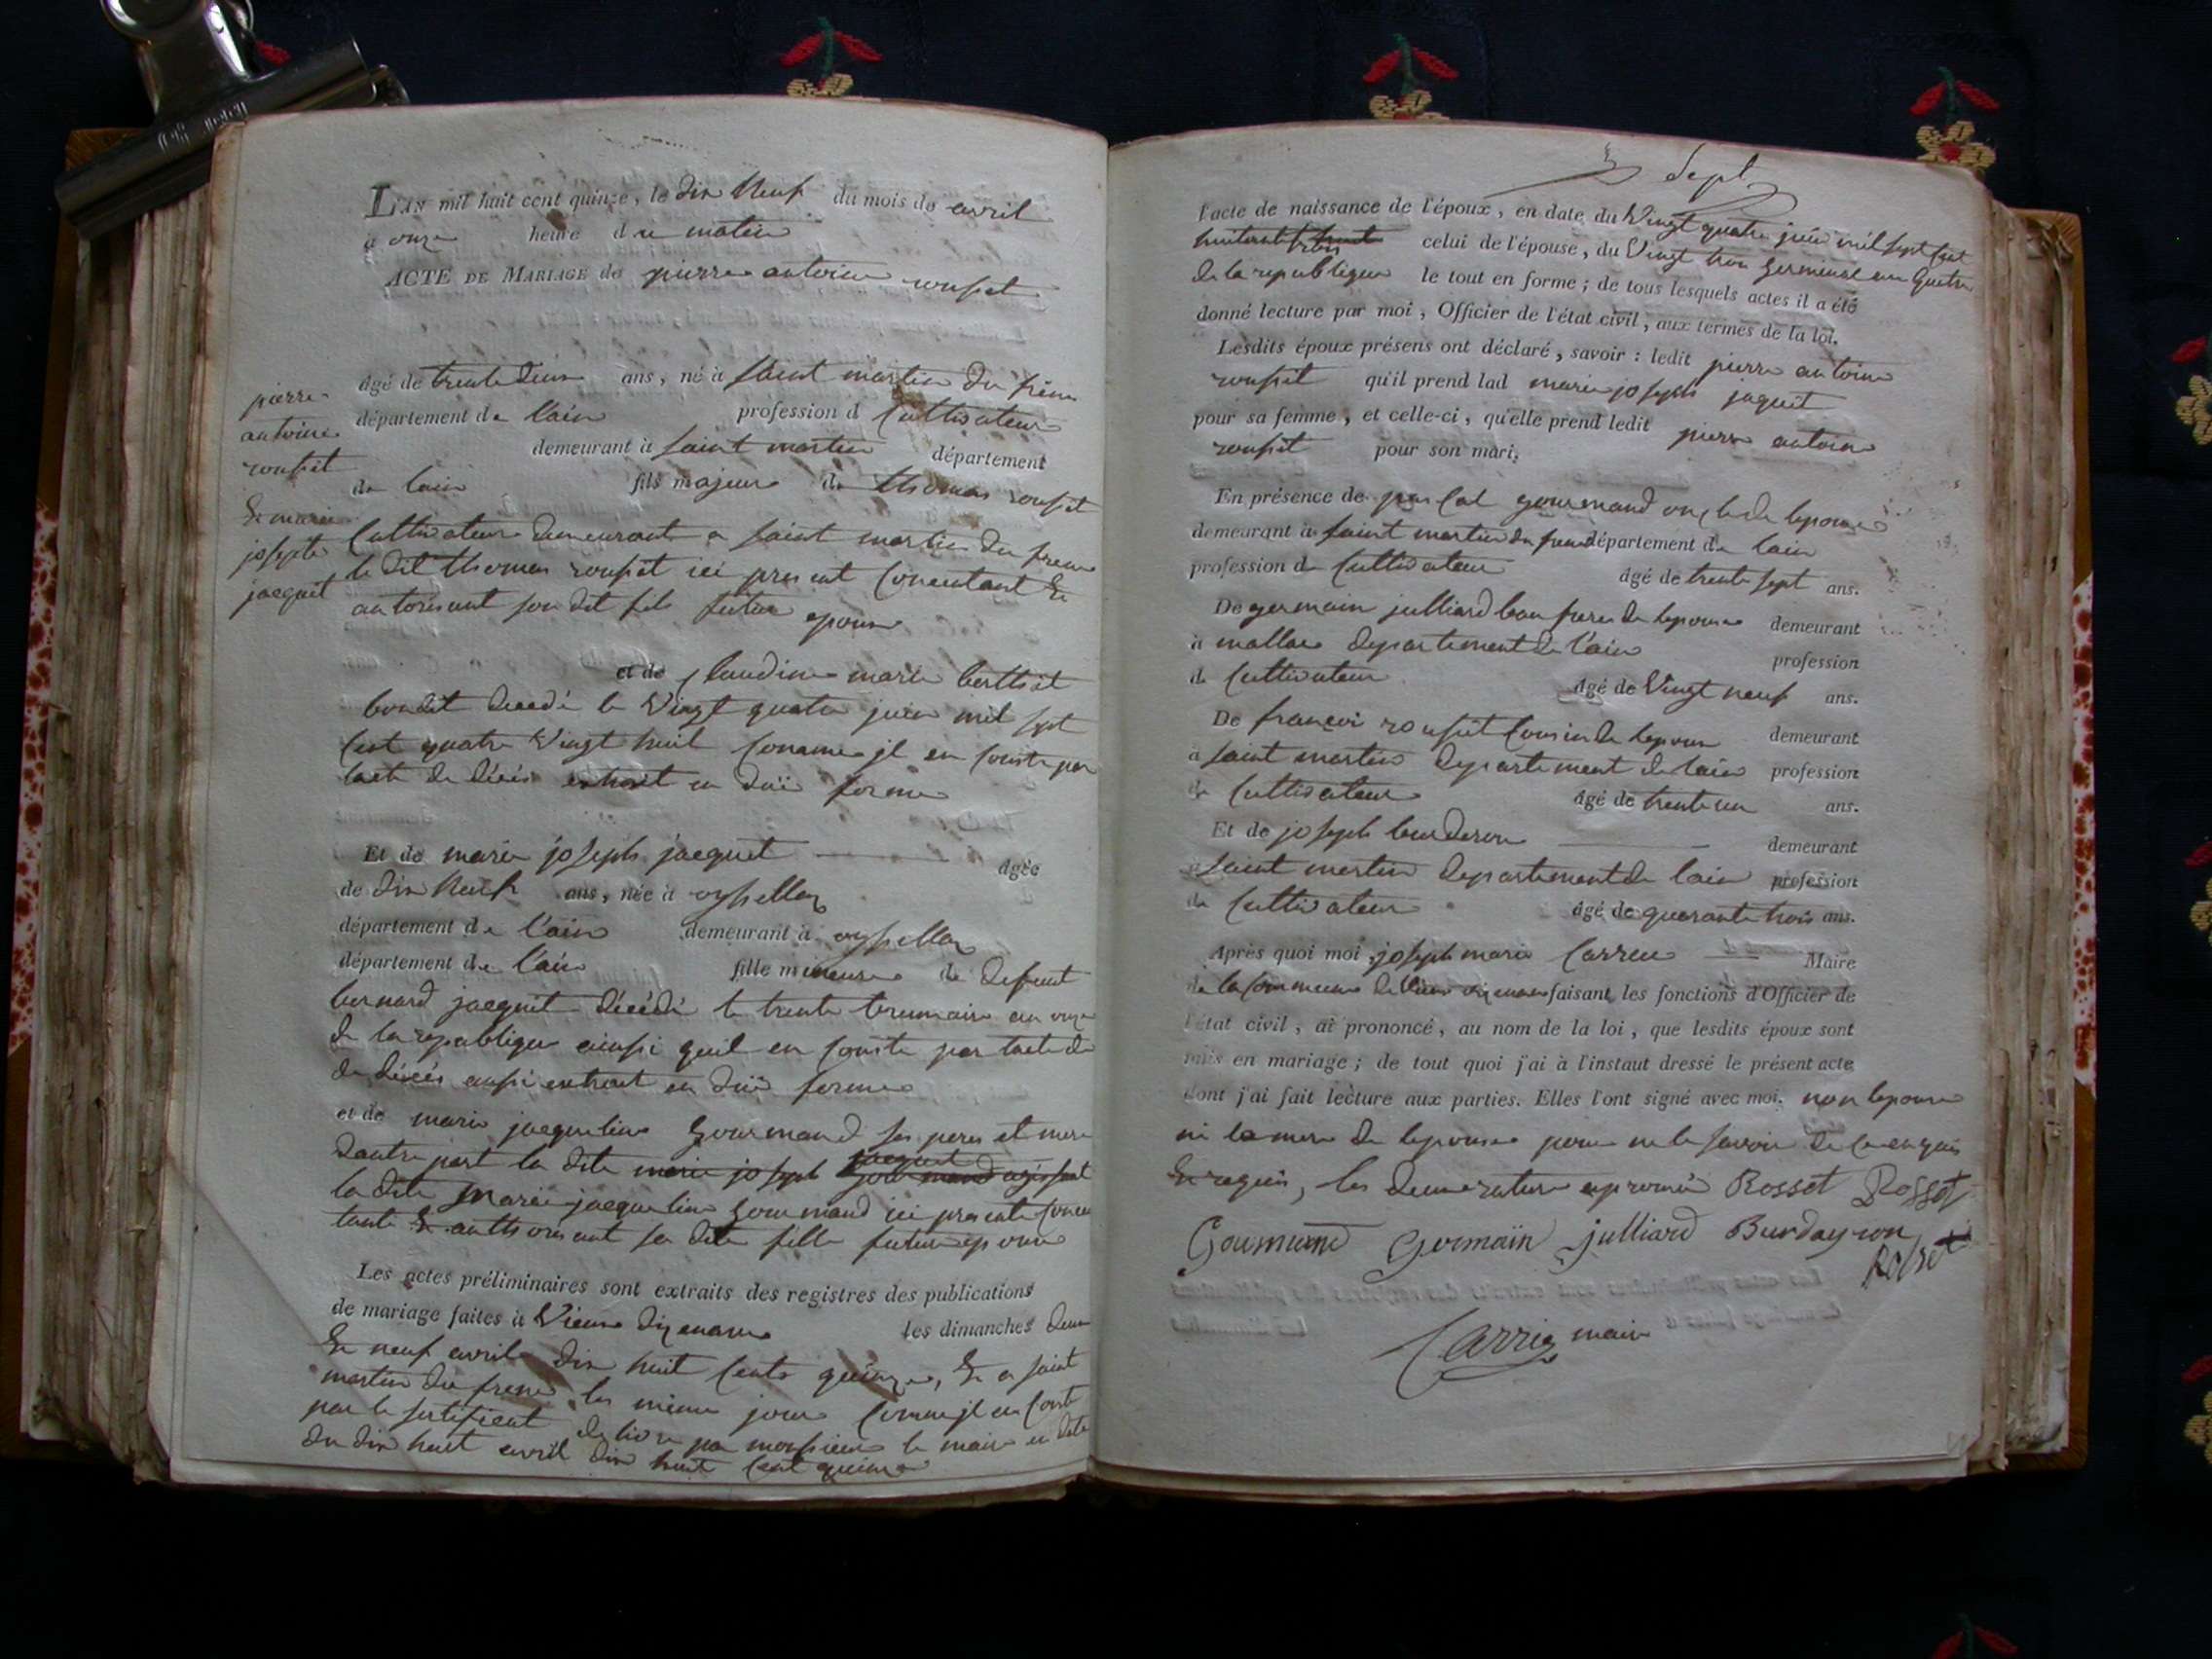 L'AN mil huit cent quinze, le dix Neuf du mois de avril
à onze heure du matin
ACTE DE MARIAGE de pierre antoine rousset
pierre
antoine
rousset
Et marie
josepte
jacquet
âgé de trente deux ans, né à saint martin du frene
département de l'ain profession d Cultivateur
demeurant à saint martin département
de lain fils majeur de thomas rousset
Cultivateur demeurant a saint martin du frene
le dit thomas rousset ici present Consentant Et
autorisant son dit fils futur epoux
et de Claudine marie berthet
decedé le Vingt quatre juin mil sept
Cent quatre Vingt huit Comme jl en Conste par
lacte de décés extrait en düe forme
Et de marie joseph jacquet âgée
de dix Neuf ans, née à
département de l'ain demeurant à
département de l'ain fille mineure de defunt
bernard jacquet décédé le trente brumaire an onze
de la republique ainsi quil en Conste par lacte de
de décés aussi extrait en düe forme
et de marie jacqueline Gourmand ses peres et mere
dautre part la dite marie joseph jacquet
la dite Marie jacqueline Gourmand ici presente Consen
tante Et authorisant sa dite fille future epouse
Les actes préliminaires sont extraits des registres des publications
de mariage faites à Vieux Dizenave les dimanches deux
Et neuf avril dix huit Cents quinze, Et a saint
martin du frene les meme jour Comme jl en Conste
par le certificat delivre par monsieur le maire en date
du dix huit avril dix huit Cent quinze
Sept
l'acte de naissance de l'époux, en date du Vingt quatre juin mil sept Cent
celui de l'épouse, du Vingt trois Germinal an Quatre
de la republique le tout en forme; de tous lesquels actes il a été
donné lecture par moi, Officier de l'état civil, aux termes de la loi.
Lesdits époux présens ont déclaré, savoir : ledit pierre antoine
rousset qu'il prend lad marie joseph jaquet
pour sa femme, et celle-ci, qu'elle prend ledit pierre antoine
rousset pour son mari.
En présence de pascal gourmand oncle de lepouse
demeurant à saint martin du frene département de lain
profession de Cultivateur âgé de trente sept ans.
De germain julliard beau frere de lepouse demeurant
à departement de l'ain profession
de Cultivateur âgé de Vingt neuf ans.
De françoi rousset Cousin de lepoux demeurant
à saint martin departement de lain profession
de Cultivateur âgé de trente un ans.
Et de joseph demeurant
a saint martin departement de lain profession
de Cultivateur âgé de quarante trois ans.
Après quoi moi joseph marie Carrier Maire
de la Commune de Vieux faisant les fonctions d'Officier de
l'état civil, ai prononcé, au nom de la loi, que lesdits époux sont
unis en mariage; de tout quoi j'ai à l'instant dressé le présent acte
dont j'ai fait lecture aux parties. Elles l'ont signé avec moi. non lepouse
ni la mere de lepouse pour ne le savoir de ce enquis
Et requis, les deux ratures aprouvé Rosset Rosset
Gourmand Germain julliard Burdayron
Rosset
Carrier maire